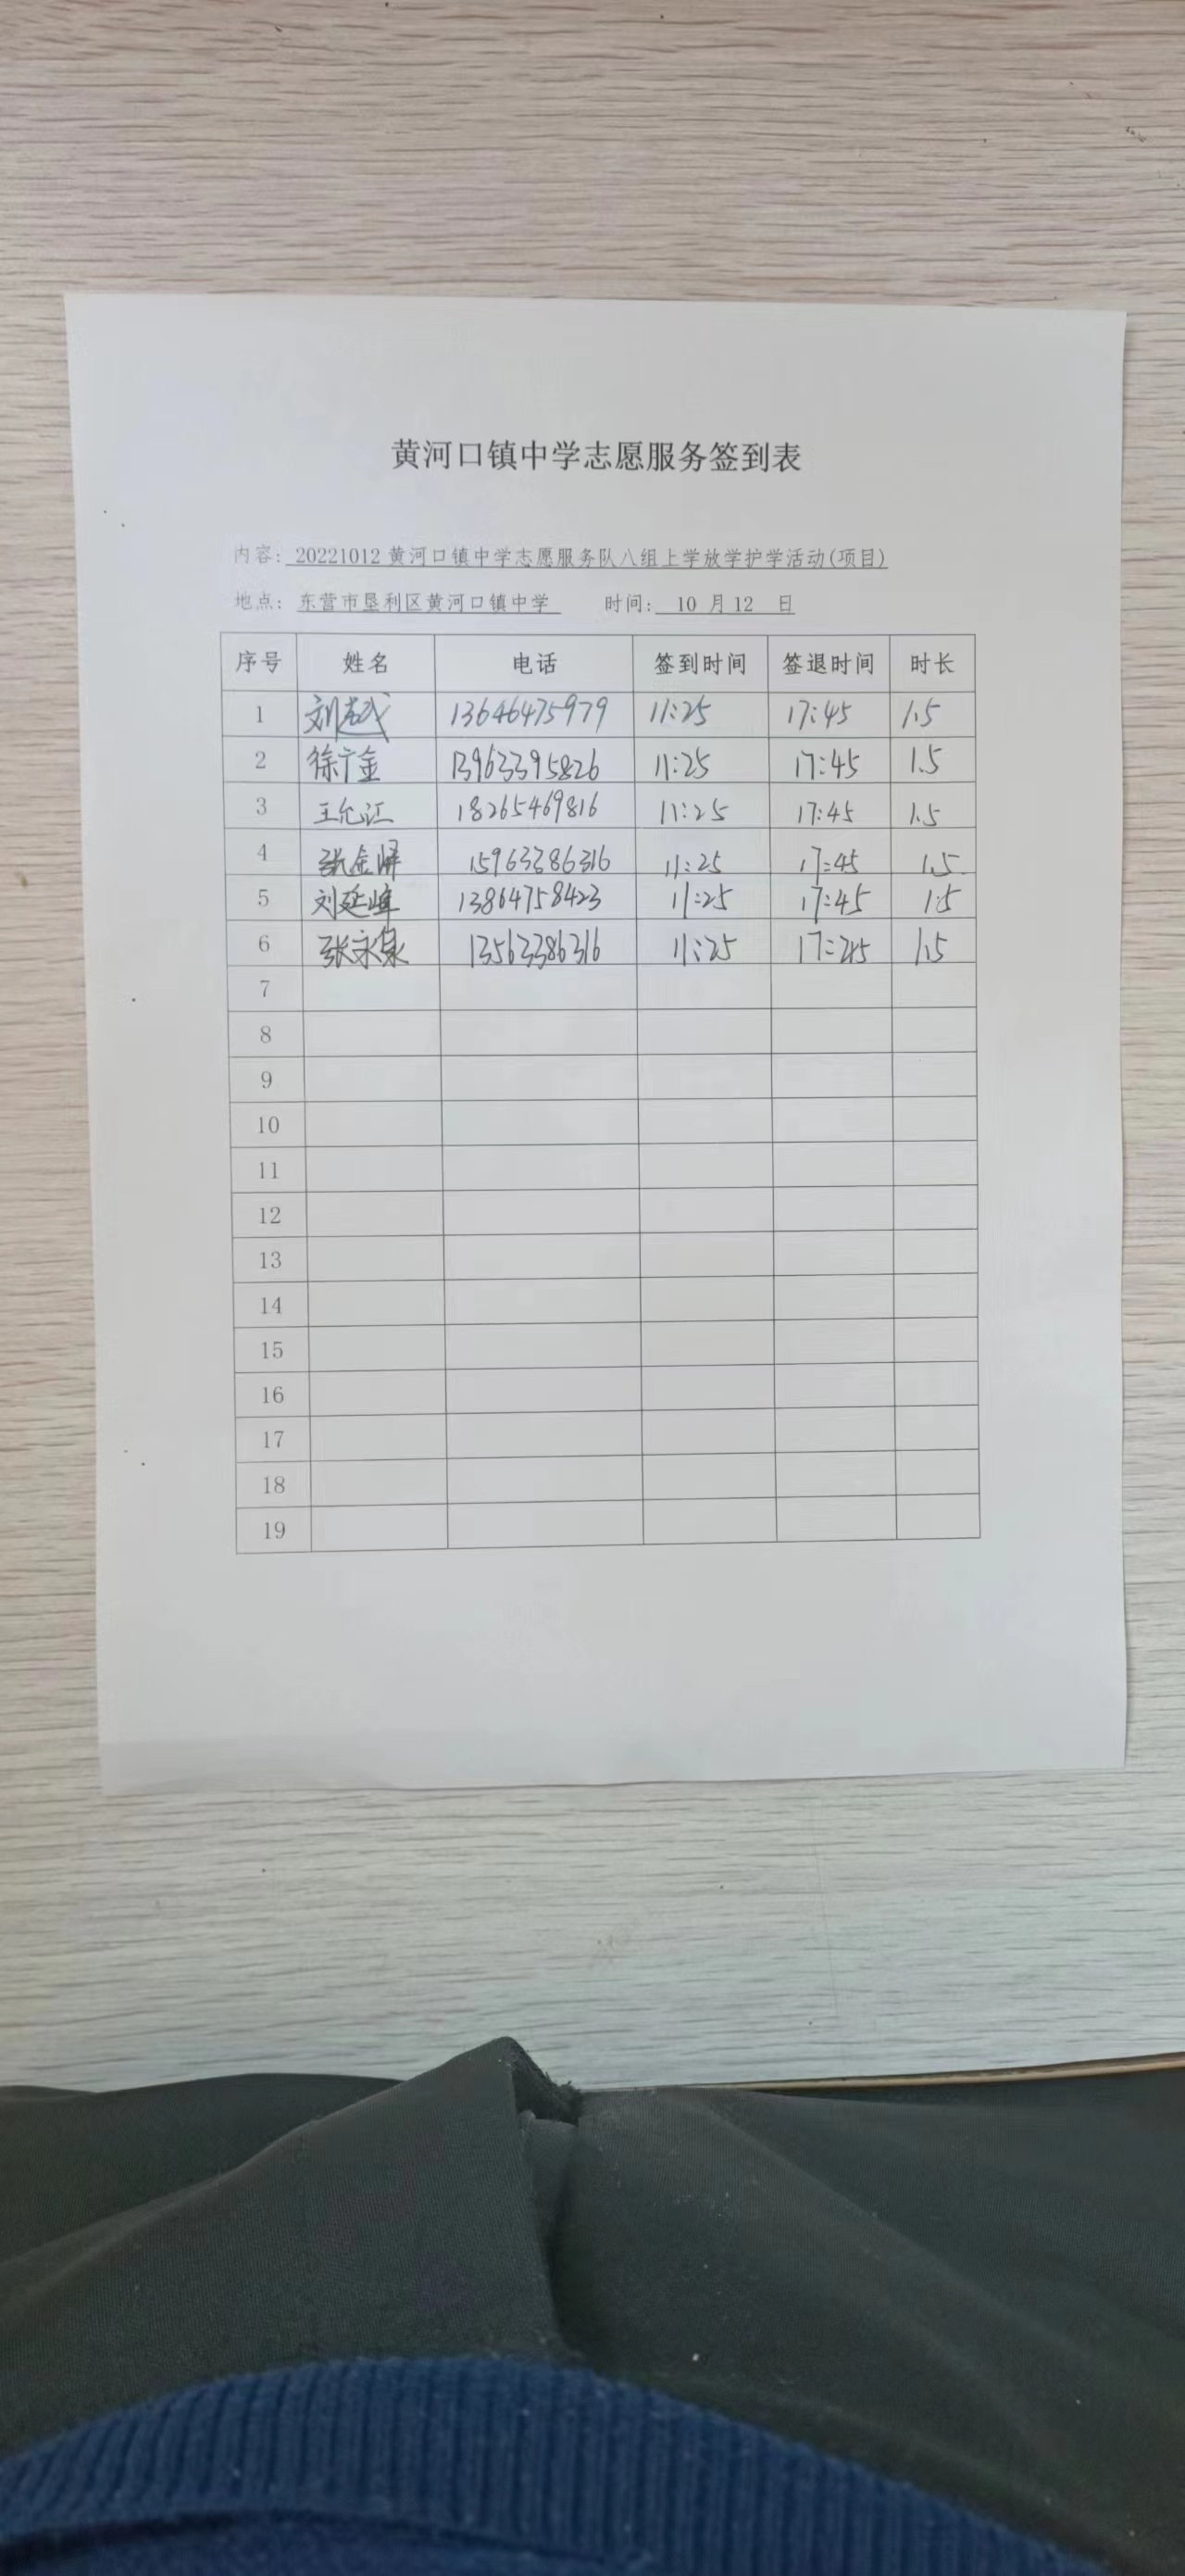 黄河口镇中学志愿服务签到表
内容: 20221012 黄河口镇中学志愿服务队八组上学放学护学活动(项目)
地点: 东营市垦利区黄河口镇中学 时间: 10 月 12 日
序号 姓名 电话 签到时间 签退时间 时长
1 刘 13646475979 11:25 17:45 1.5
2 徐广金 13963395826 11:25 17:45 1.5
3 王允江 18265469816 11:25 17:45 1.5
4 张金 15963386316 11:25 17:45 1.5
5 刘延峰 13864758423 11:25 17:45 1.5
6 张永泉 13563386316 11:25 17:45 1.5
7
8
9
10
11
12
13
14
15
16
17
18
19